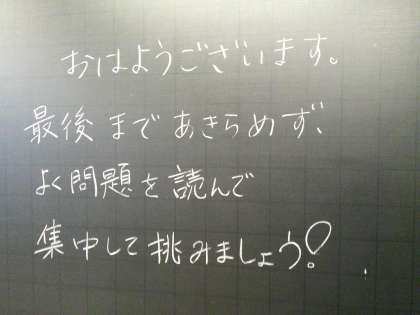 おはようございます。
最後まであきらめず、
よく問題を読んで
集中して挑みましょう!